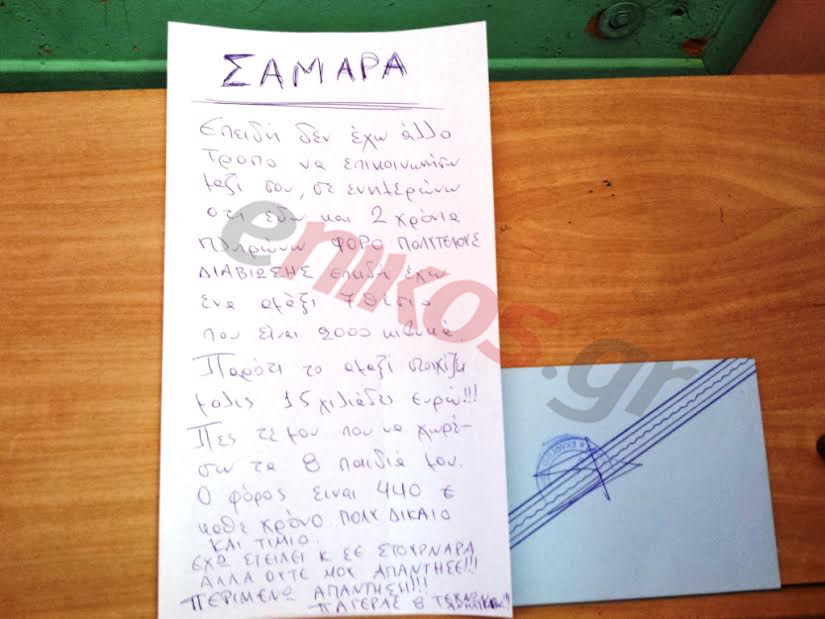 ΣΑΜΑΡΑ
Επειδή δεν έχω άλλο
τροπο να επικοινωνήσω
μαζί σου, σε ενημερώνω
οτι εδω και 2 χρόνια
πληρώνω ΦΟΡΟ ΠΟΛΥΤΕΛΟΥΣ
ΔΙΑΒΙΩΣΗΣ επειδή έχω
ενα αμάξι 7θέσιο
που είναι 2000 κυβικά.
Παρότι το αμαξί στοιχίζει
μολις 15 χιλιάδες ευρώ!!!
Πες τε μου που να χωρέ-
σω τα 8 παιδιά μου.
Ο φόρος ειναι 440 €
καθε χρόνο. ΠΟΛΥ ΔΙΚΑΙΟ
ΚΑΙ ΤΙΜΙΟ.
ΕΧΩ ΣΤΕΙΛΕΙ Κ ΣΕ ΣΤΟΥΡΝΑΡΑ
ΑΛΛΑ ΟΥΤΕ ΜΟΥ ΑΠΑΝΤΗΣΕ!!!
ΠΕΡΙΜΕΝΩ ΑΠΑΝΤΗΣΗ!!!
ΠΑΤΕΡΑΣ 8
enikos.gr